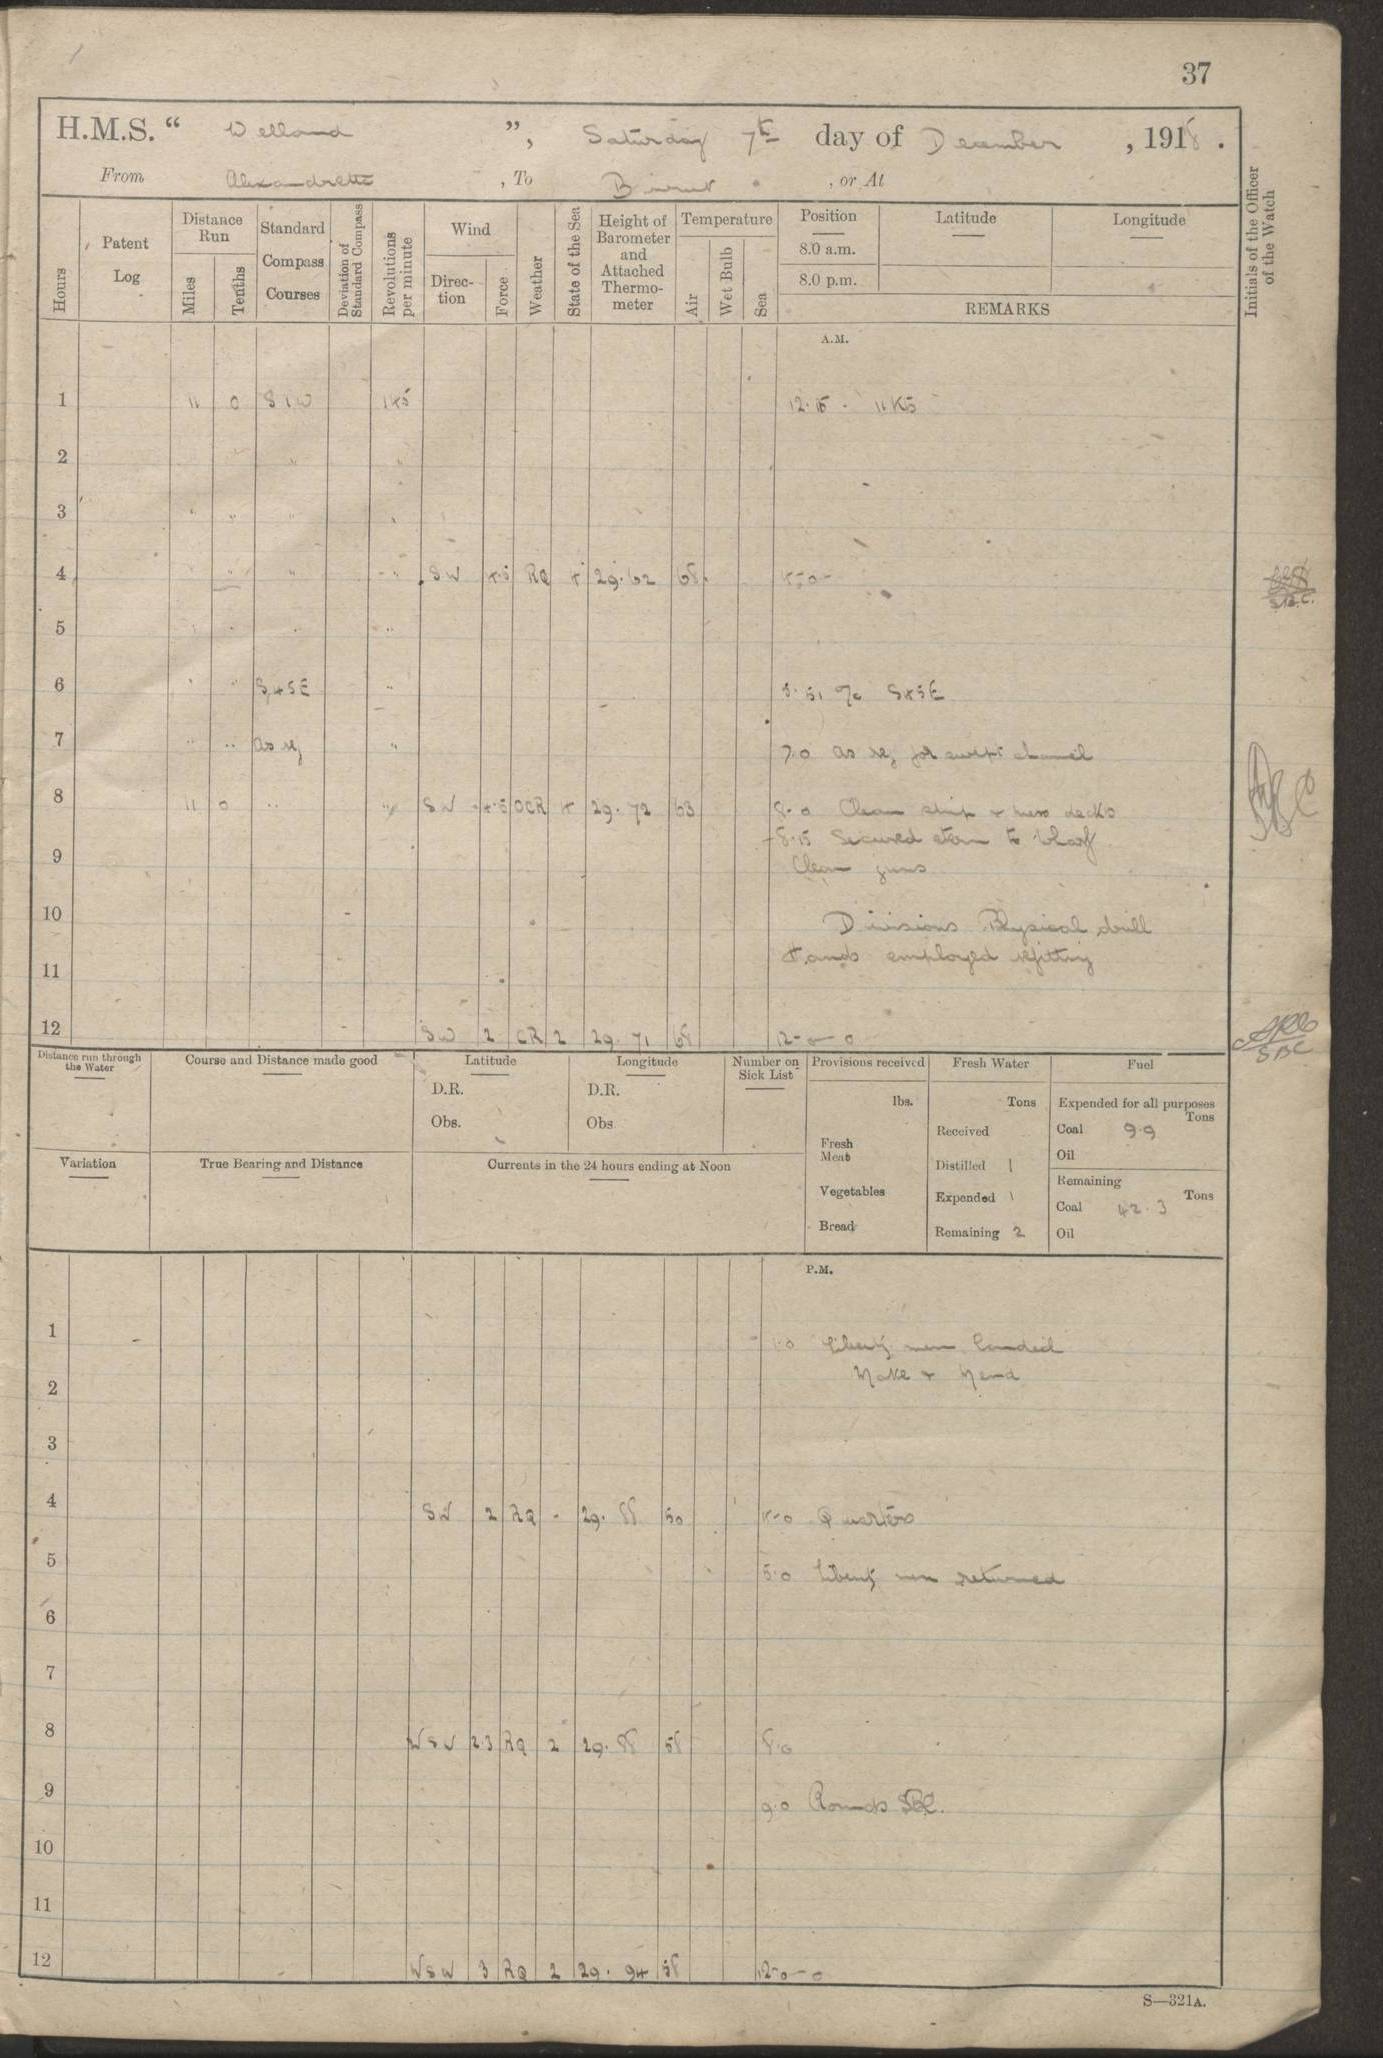 37
H.M.S. “ Welland ”, Saturday 7th day of December , 1918 .
From Alexandretta , To Beirut , or At
Hours
Patent Log
Distance Run
Miles
Tenths
Standard Compass Courses
Deviation of Standard Compass
Revolutions per minute
Wind
Direction
Force
Weather
State of the Sea
Height of Barometer and Attached Thermometer
Temperature
Air
Wet Bulb
Sea
Position
8.0 a.m.
8.0 p.m.
Latitude
Longitude
REMARKS
Initials of the Officer of the Watch
A.M.
1 11 0 S1W 145 12.15 - 11 Ks
2 " "
3 " " " "
4 " " " SW 4.5 RQ 4 29.62 68 4-0-
5 " " "
6 " " S45E " 5.51 a/c S45E
7 " " as req " 7.0 as req for swept channel
8 11 0 " " SW 4.5 OCR 4 29.72 63 8-0 Clean ship & mess decks
8.15 Secured stern to wharf
9 Clean guns
10 Divisions Physical drill
Hands employed refitting
11
12 SW 2 CR 2 29.71 68 12-0-0
SBC
Distance run through the Water
Course and Distance made good
Latitude
D.R.
Obs.
Longitude
D.R.
Obs
Number on Sick List
Provisions received
lbs.
Fresh Meat
Vegetables
Bread
Fresh Water
Tons
Received
Distilled 1
Expended 1
Remaining 2
Fuel
Expended for all purposes
Tons
Coal 9.9
Oil
Remaining
Tons
Coal 42.3
Oil
Variation
True Bearing and Distance
Currents in the 24 hours ending at Noon
P.M.
1 1.0 Liberty men landed
Make & Mend
2
3
4 SW 2 RQ - 29.88 50 4-0 Quarters
5 5.0 Liberty men returned
6
7
8 WSW 2.3 RQ 2 29.88 58 8.0
9 9.0 Rounds SBC.
10
11
12 WSW 3 RQ 2 29.94 58 12-0-0
S—321A.